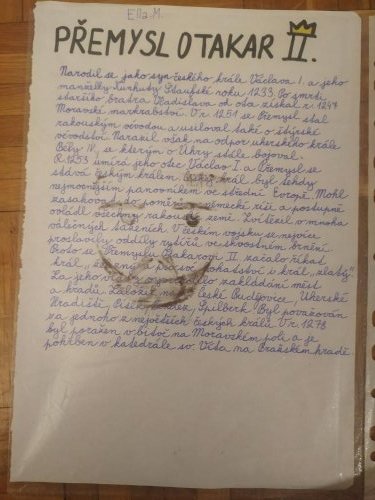 Ella M.
PŘEMYSL OTAKAR II.
Narodil se jako syn českého krále Václava I. a jeho
manželky Kunhuty Štaufské roku 1233. Po smrti
staršího bratra Vladislava od ota získal r. 1247
Moravské markrabství. V r. 1251 se Přemysl stal
rakouským vévodou a usiloval také o štýrské
vévodství. Narazil však na odpor uherského krále
Bély IV., se kterým o Uhry stále bojoval.
R. 1253 umírá jeho otec Václav I. a Přemysl se
stává českým králem. král byl tehdy
nejmocnějším panovníkem ve střední Evropě. Mohl
zasahovat do poměrů německé říše a postupně
ovládl všechny rakouské země. Zvítězil v mnoha
válečných taženích. V českém vojsku se nejvíce
proslavily oddíly rytířů ve skvostném brnění.
Proto se Přemyslu Otakarovi II. začalo říkat
král a pro bohatství i král „zlatý".
Za jeho zakládání měst
a hradů. Založil České Budějovice, Uherské
Hradiště, Písek, Špilberk. Byl považován
za jednoho z největších českých králů. V r. 1278
byl poražen v bitvě na Moravském poli a je
pohřben v katedrále sv. Víta na Pražském hradě.